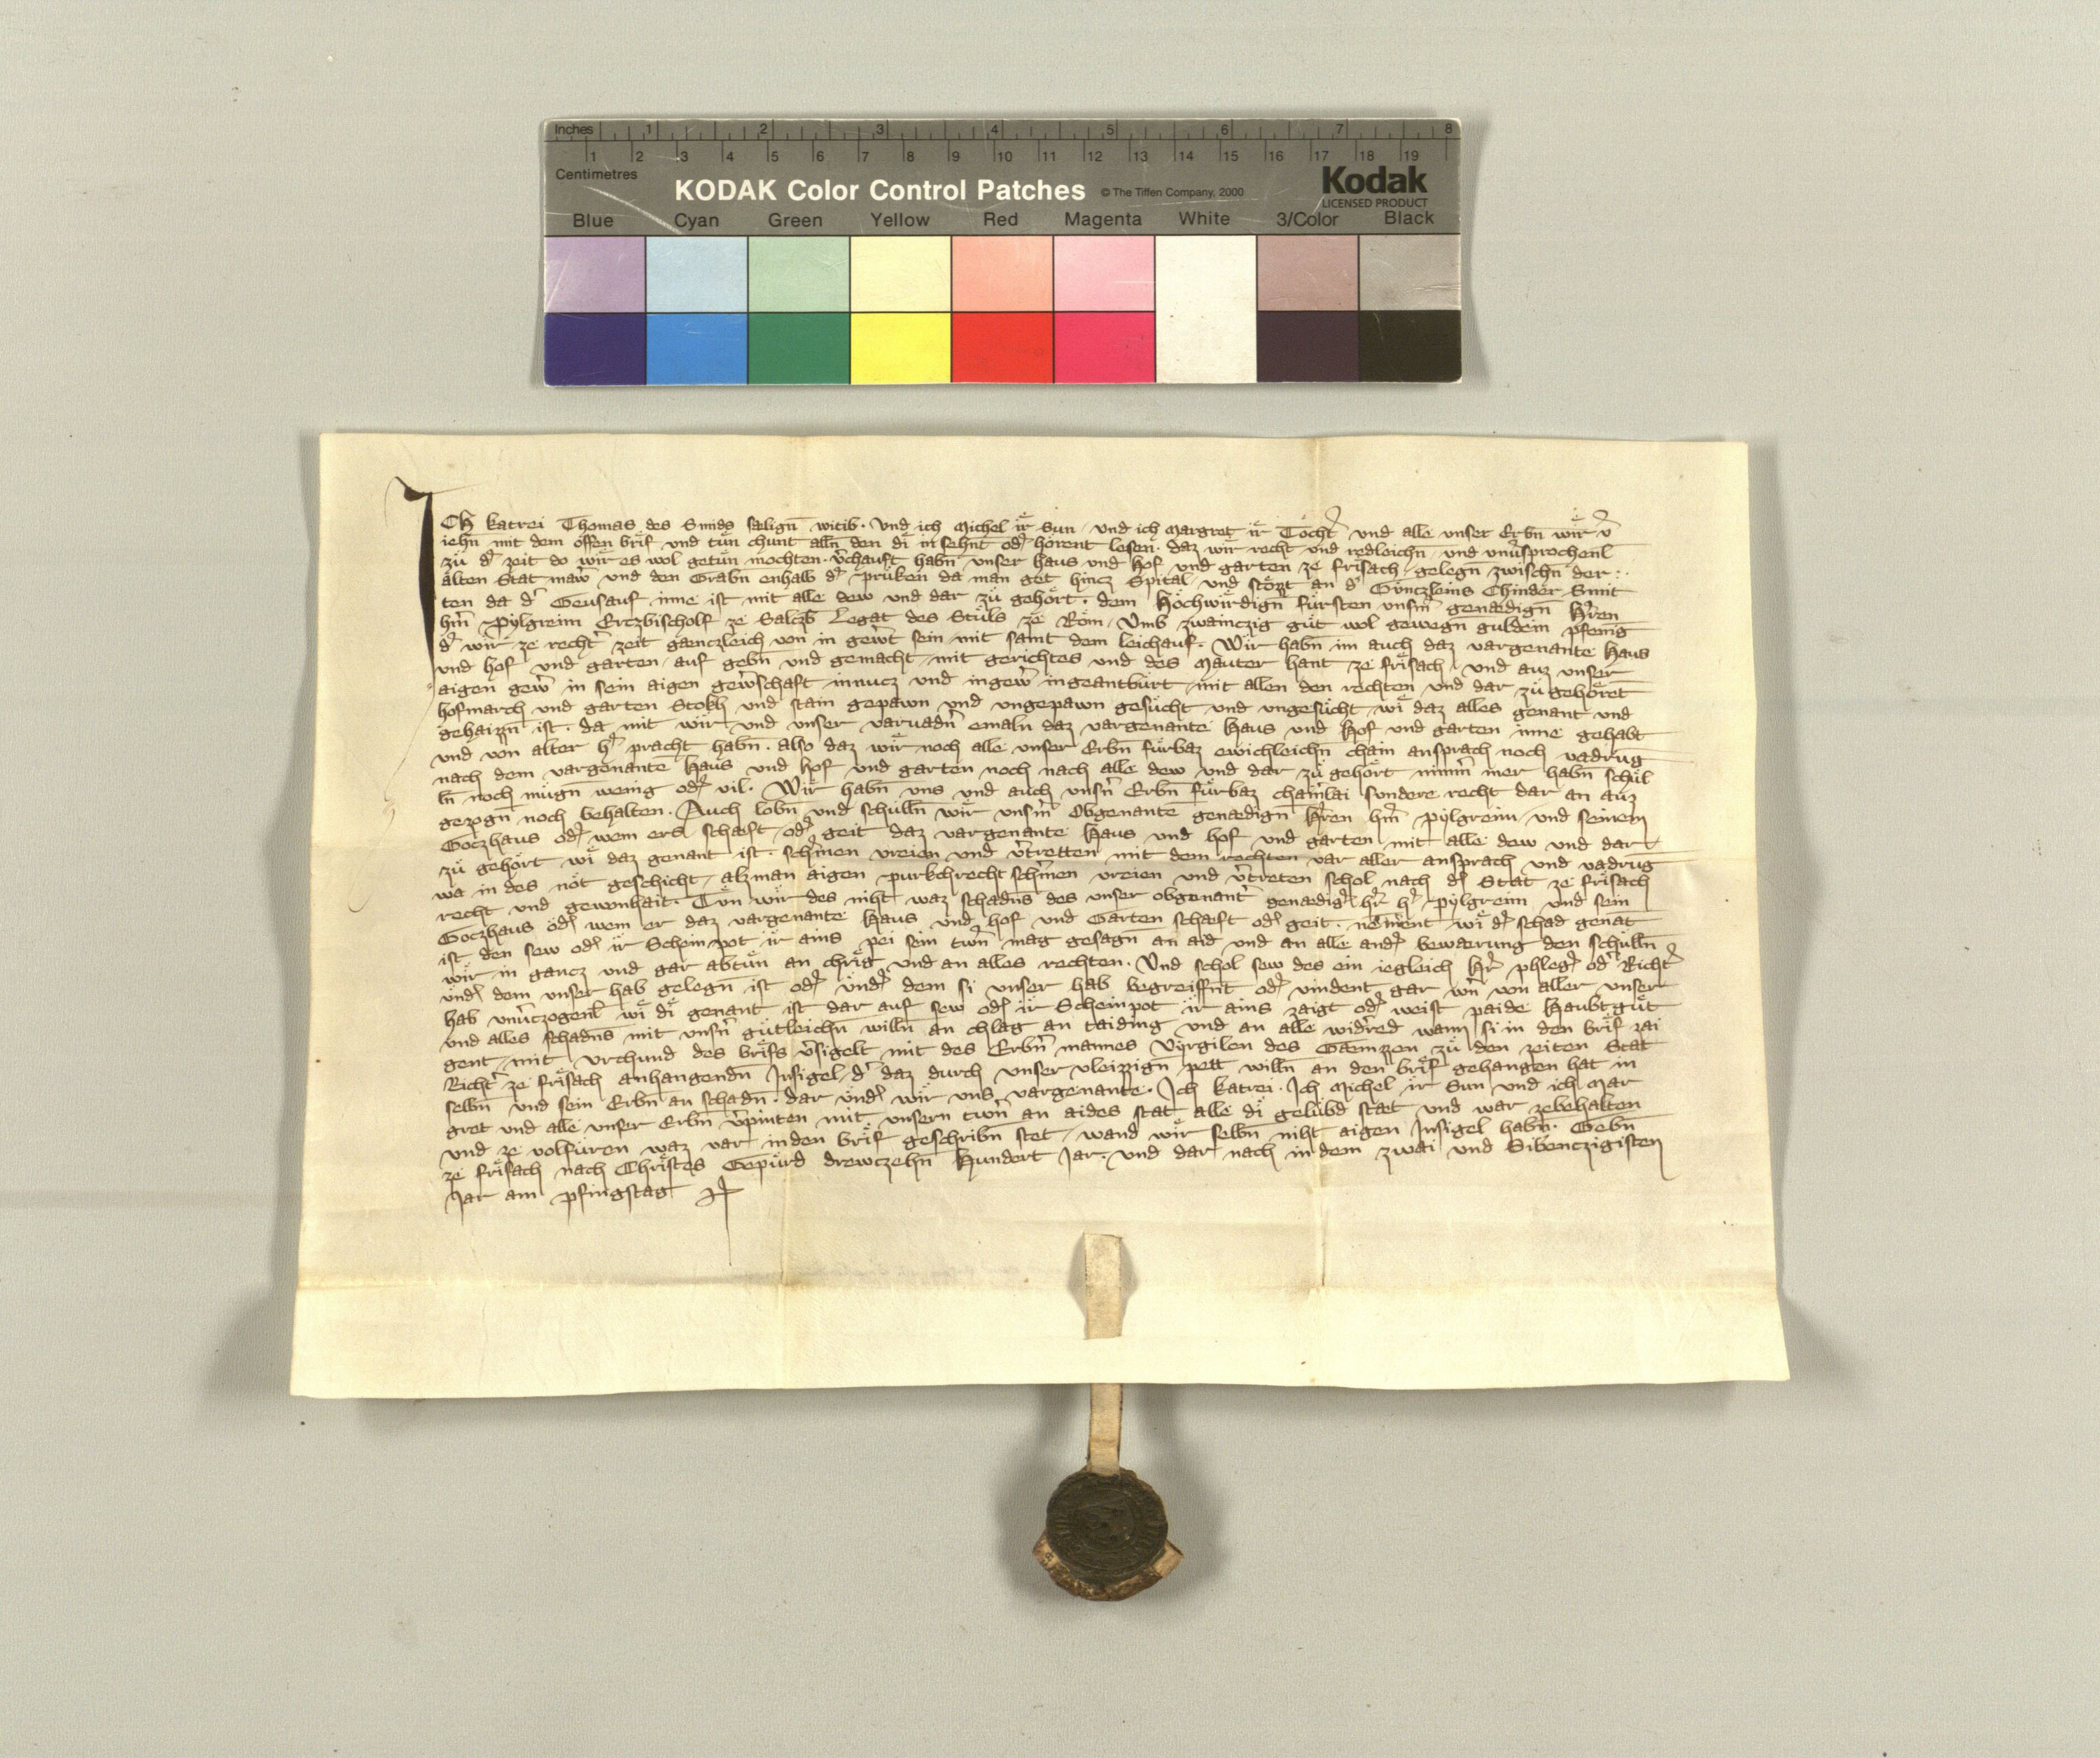 Inches 1 2 3 4 5 6 7 8
1 2 3 4 5 6 7 8 9 10 11 12 13 14 15 16 17 18 19
Centimetres
KODAK Color Control Patches © The Tiffen Company, 2000 Kodak
LICENSED PRODUCT
Blue Cyan Green Yellow Red Magenta White 3/Color Black
ICH katrei Thomas des Smids sælign̄ witib. Und ich Michel ir Sun und ich Margret ir Tocht̾ und alle unser Erbn̄ wir v̾
iehn̄ mit dem offen brif und tůn chunt alln̄ den di in sehnt od̾ horent lesen. daz wir recht und redleichn̄ und unv̾sprochenl̄
zů d̾ zeit do wir es wol getůn mochten. v̾chauft habn̄ unser haus und hof und garten ze frisach gelegn̄ zwischn̄ der
alten Stat maw̾ und den Grabn̄ enhalb d̾ pruken da man get hincz Spital und stozzt an d̾ Gůnczleins Chinder Smit
ten da d̾ Gensauf inne ist mit alle dew und dar zů gehört. dem Hochwirdign̄ fürsten unsm̾ genædign̄ H̾ren
hm̾ Pylgreim Erczbischolf ze Salczb̄ Legat des Stůls ze Rom. Umb zwainczig gůt wol gewegn̄ guldein pfenig
d̾ wir ze recht̾ zeit gænczleich von in gew̾t sein mit samt dem leichauf. Wir habn̄ im auch daz vargenante Haus
und hof und garten auf gebn̄ und gemacht mit gerichtes und des Mauter hant ze frisach und auz unser
aigen gew̾ in sein aigen gew̾schaft in nucz und in gew̾ ingeantburt mit allen den rechten und dar zů gehoret
hofmarch und garten Stokh und stain gepawn und ungepawn gesücht und ungesücht wi daz alles genant und
gehaizzn̄ ist. da mit wir und unser varvadn̾ emaln daz vargenante Haus und Hof und garten inne gehabt
und von alter h̾ pracht habn̄. also daz wir noch alle unser Erbn̄ fürbaz ewichleichn̄ chain ansprach noch vadrug
nach dem vargenante Haus und hof und garten noch nach alle dew und dar zů gehört nimm̾ mer habn̄ schul
ln̄ noch mugn̄ wenig od̾ vil. Wir habn̄ uns und auch unsn̾ Erbn̄ fürbaz cham̾lai sondere recht dar an auz
gezogn̄ noch behalten. Auch lobn̄ und schulln̄ wir unsm̾ Obgenante genædign̄ H̾ren hm̾ Pylgreim und seinem
Goczhaus od̾ wem ers schaft od̾ geit daz vargenante Haus und hof und garten mit alle dew und dar
zů gehört wi daz genant ist. sch̾men vreien und v̾tretten mit dem rechten var aller ansprach und vadrug
wa in des not geschicht alz man aigen purkchrecht sch̾men vreien und v̾treten schol nach d̾ Stat ze frisach
recht und gewonhait. Tůn wir des niht waz schadns̄ des unser obgenant̾ genædig̾ h̾r h̾ Pylgreim und sein
Goczhaus od̾ wem er daz vargenante Haus und hof und Garten schaft od̾ geit. nem̾ent wi d̾ schad genāt
ist den sew od̾ ir Schein pot ir ains pei sein tw̾n mag gesagn̄ an aid und an alle and̾ bewærung den schulln̄
wir in gancz und gar abtůn an chrig und an alles rechten. Und schol sew des ein iegleich H̾r phleg̾ od̾ Richt̾
und̾ dem unser hab gelegn̄ ist od̾ und̾ dem si unser hab begreiffnt od̾ vindent gar w̾n von aller unser
hab unv̾czogenl̄ wi di genant ist dar auf sew od̾ ir Scheinpot ir ains zaigt od̾ weist paide Haubtgůt
und alles schadns̄ mit unsn̾ gůtleichn̄ willn̄ an chlag an taiding und an alle wid̾red wann si in den brif zai
gent mit Urchund des brifs v̾sigelt mit des Erbn̾ mannes Virgilen des Gæmzen zů den zeiten Stat
Richt̾ ze frisach anhangendn̄ Insigel d̾ daz durch unser vleizzign̄ pett willn̄ an den brif gehangen hat in
selbn̄ und sein Erbn̄ an schadn̄. dar und̾ wir uns vargenante. Ich katrei. Ich Michel ir Sun und ich Mar
gret und alle unser Erbn̄ v̾pinten mit unsern tw̾n an aides stat alle di gelubd stæt und war zebehalten
und ze volfůren waz var in den brif geschribn̄ stet wand wir selbn̄ niht aigen Insigel habn̄. Gebn̄
ze frisach nach Christes Gepůrd drewczehn̄ Hundert Jar. und dar nach in dem zwai und Sibenczigisten
Jar am pfingstag